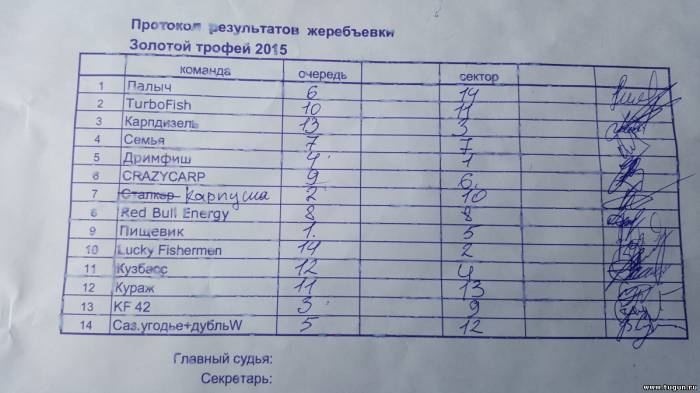 Протокол результатов жеребъевки
Золотой трофей 2015
команда очередь сектор
1 Палыч 6 14
2 TurboFish 10 11
3 Карпдизель 13 3
4 Семья 7 7
5 Дримфиш 4 1
6 CRAZYCARP 9 6
7 Сталкер Карпуша 2 10
8 Red Bull Energy 8 8
9 Пищевик 1 5
10 Lucky Fishermen 14 2
11 Кузбасс 12 4
12 Кураж 11 13
13 KF 42 3 9
14 Саз.угодье+дубльW 5 12
Главный судья:
Секретарь:
www.tugun.ru